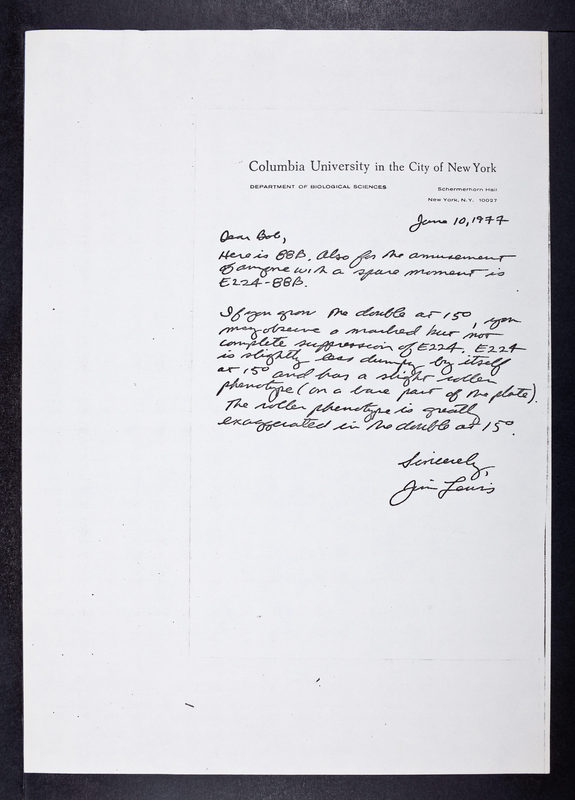 Columbia University in the City of New York
DEPARTMENT OF BIOLOGICAL SCIENCES
Schermerhorn Hall
New York, N.Y. 10027
June 10, 1977
Dear Bob,
Here is 88B. Also for the amusement
of anyone with a spare moment is
E224-88B.
If you grow the double at 15°, you
may observe a marked but not
complete suppression of E224. E224
is slightly less dumpy by itself
at 15° and has a slight roller
phenotype (on a bare part of the plate).
The roller phenotype is greatly
exaggerated in the double at 15°.
Sincerely,
Jim Lewis